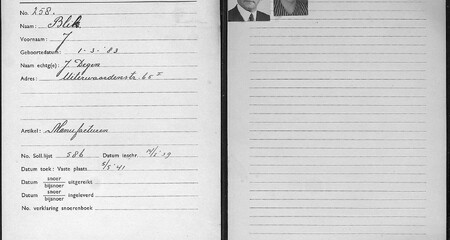 No. 258.
Naam: Blik
Voornaam: J
Geboortedatum: 1-3-'83
Naam echtg(e): J. Degen
Adres: Uiterwaardenstr. 65 II
Artikel: Manufacturen
No. Soll.lijst 586 Datum inschr. 14/5 '39
Datum toek: Vaste plaats 5/5 '41
Datum snoer
bijsnoer uitgereikt
Datum snoer
bijsnoer ingeleverd
No. verklaring snoerenboek